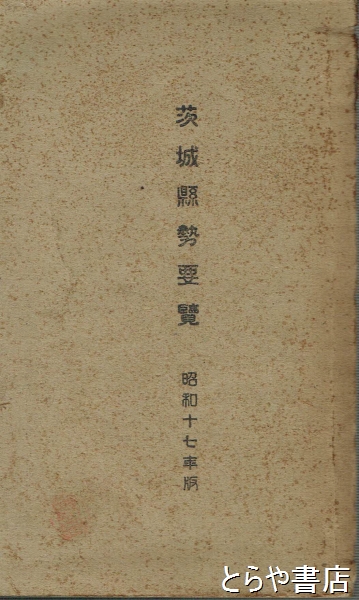 茨城縣勢要覽
昭和十七年版
とらや書店